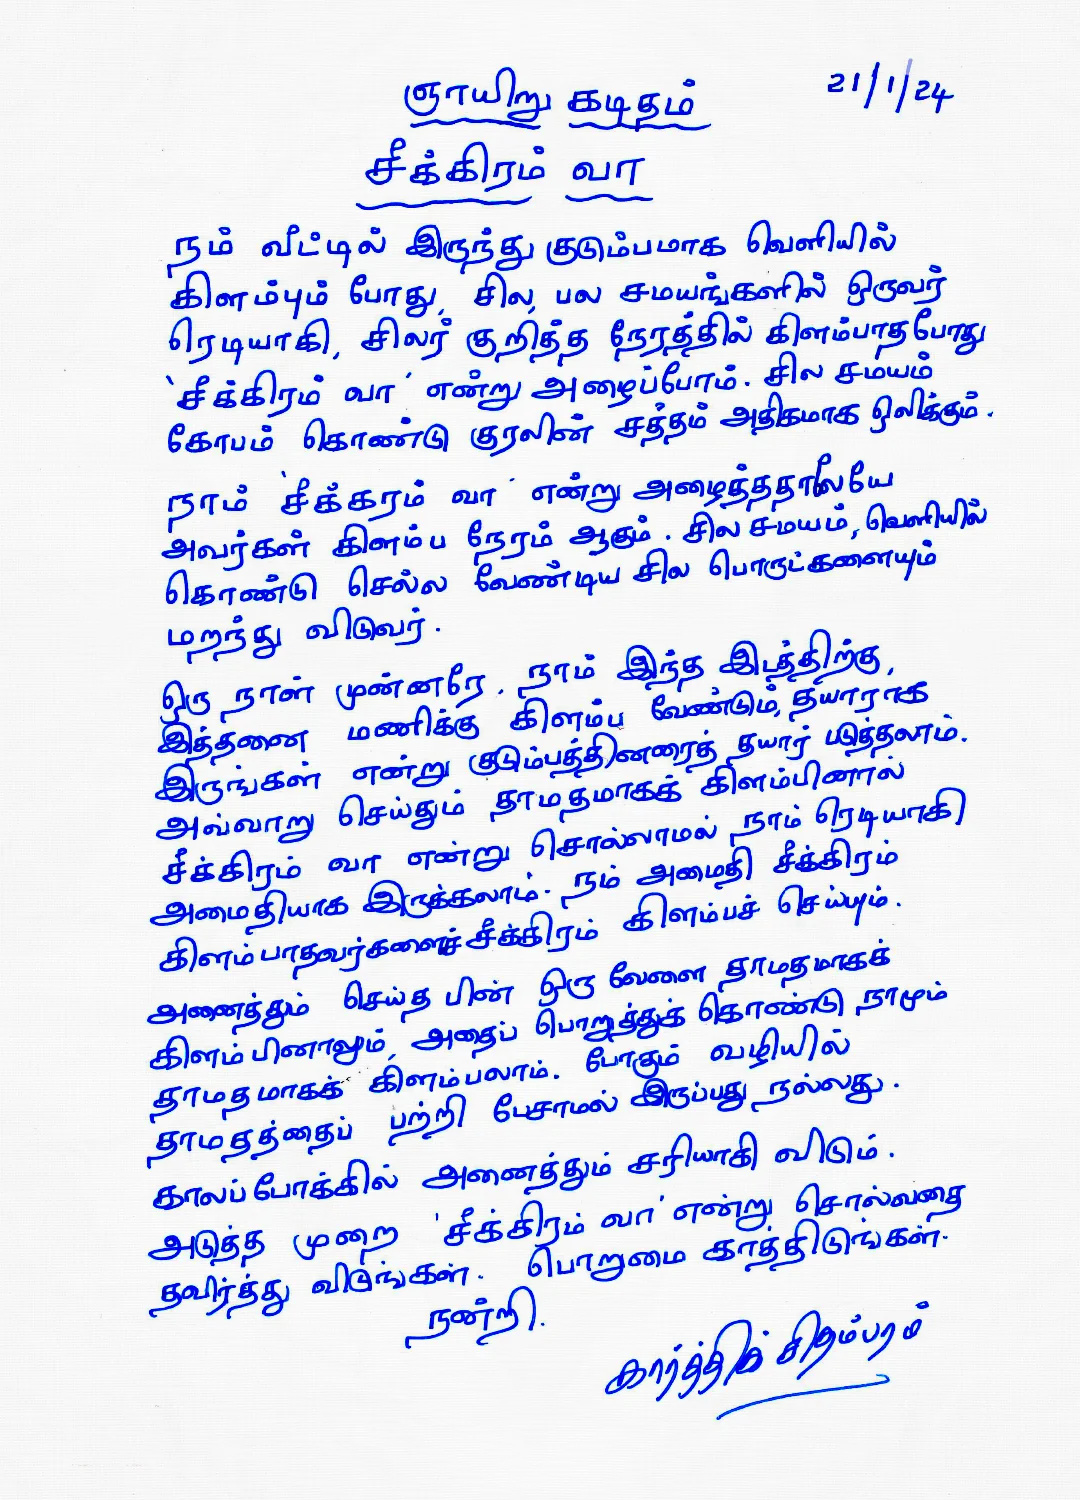 21/1/24
ஞாயிறு கடிதம்
சீக்கிரம் வா
நம் வீட்டில் இருந்து குடும்பமாக வெளியில்
கிளம்பும் போது, சில, பல சமயங்களில் ஒருவர்
ரெடியாகி, சிலர் குறித்த நேரத்தில் கிளம்பாதபோது
'சீக்கிரம் வா' என்று அழைப்போம். சில சமயம்
கோபம் கொண்டு குரலின் சத்தம் அதிகமாக ஒலிக்கும்.
நாம் 'சீக்கரம் வா' என்று அழைத்ததாலேயே
அவர்கள் கிளம்ப நேரம் ஆகும். சில சமயம், வெளியில்
கொண்டு செல்ல வேண்டிய சில பொருட்களையும்
மறந்து விடுவர்.
ஒரு நாள் முன்னரே, நாம் இந்த இடத்திற்கு,
இத்தனை மணிக்கு கிளம்ப வேண்டும், தயாராக
இருங்கள் என்று குடும்பத்தினரைத் தயார் படுத்தலாம்.
அவ்வாறு செய்தும் தாமதமாகக் கிளம்பினால்
சீக்கிரம் வா என்று சொல்லாமல் நாம் ரெடியாகி
அமைதியாக இருக்கலாம். நம் அமைதி சீக்கிரம்
கிளம்பாதவர்களைச் சீக்கிரம் கிளம்பச் செய்யும்.
அனைத்தும் செய்த பின் ஒரு வேளை தாமதமாகக்
கிளம்பினாலும், அதைப் பொறுத்துக் கொண்டு நாமும்
தாமதமாகக் கிளம்பலாம். போகும் வழியில்
தாமதத்தைப் பற்றி பேசாமல் இருப்பது நல்லது.
காலப்போக்கில் அனைத்தும் சரியாகி விடும்.
அடுத்த முறை 'சீக்கிரம் வா' என்று சொல்வதை
தவிர்த்து விடுங்கள். பொறுமை காத்திடுங்கள்.
நன்றி.
கார்த்திக் சிதம்பரம்